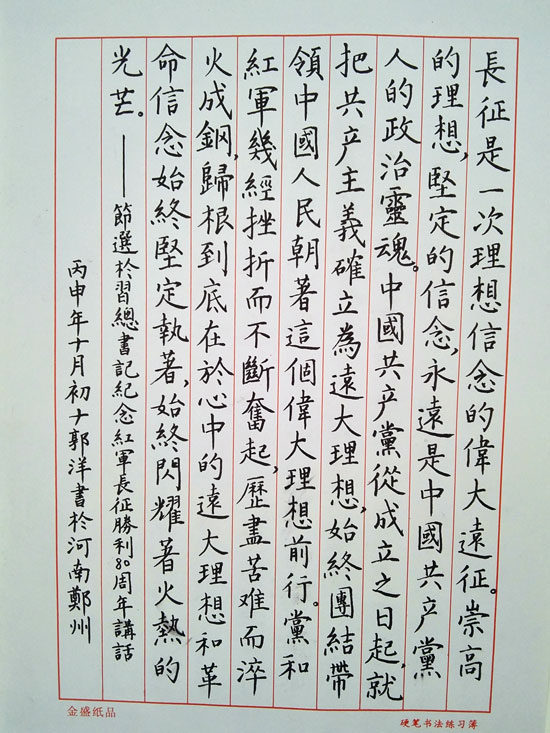 長征是一次理想信念的偉大遠征。崇高
的理想,堅定的信念,永遠是中國共产黨
人的政治靈魂。中國共产黨從成立之日起,就
把共产主義確立為遠大理想,始終團結帶
領中國人民朝著這個偉大理想前行。黨和
紅軍幾經挫折而不斷奮起,歷盡苦难而淬
火成鋼,歸根到底在於心中的遠大理想和革
命信念始終堅定執著,始終閃耀著火熱的
光芒。——節選於習總書記紀念紅軍長征勝利80周年講話
丙申年十月初十郭洋書於河南鄭州
金盛纸品
硬笔书法练习簿